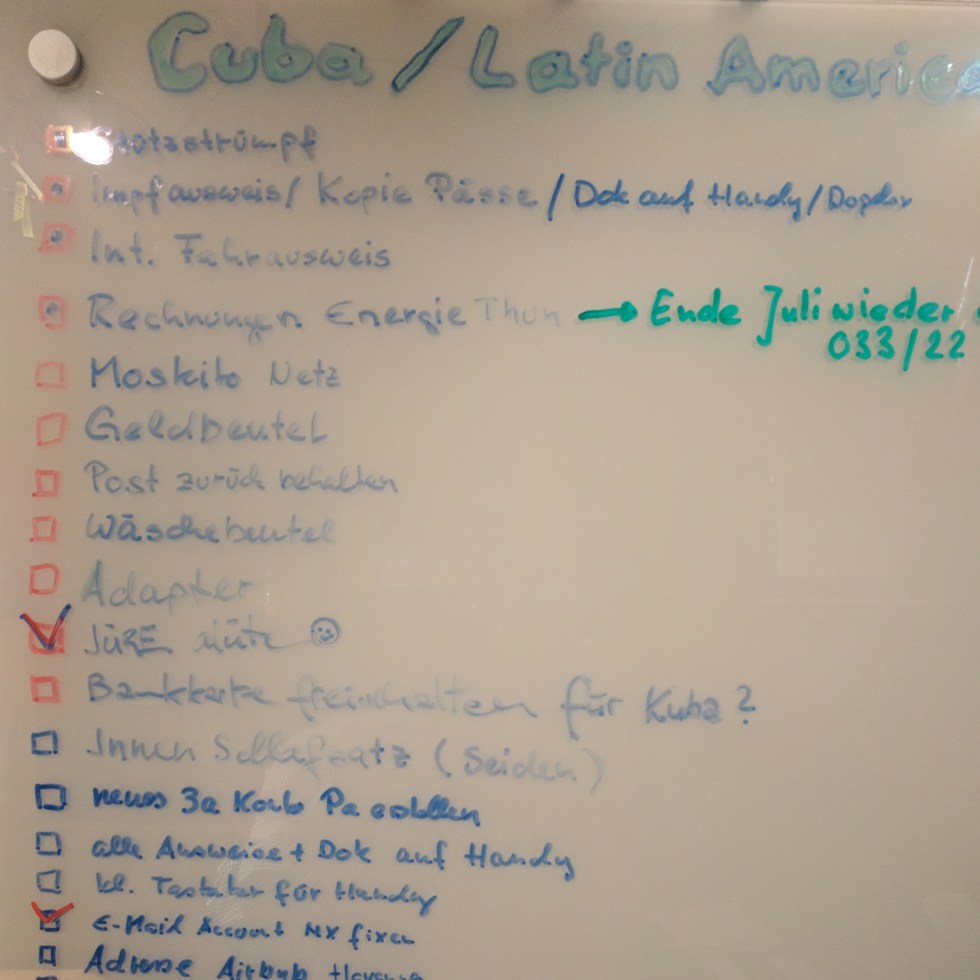 Cuba / Latin America
Impfausweis / Kopie Pässe / Dok auf Handy /
Int. Fahrausweis
Rechnungen Energie Thun → Ende Juli wieder
033/22
Moskito Netz
Geldbeutel
Post zurück behalten
Wäschebeutel
Adapter
JÜRE
Bankkarte freischalten für Kuba?
Innen Schlafsatz (Seiden)
neues 3a Konto
alle Ausweise + Dok auf Handy
kl. Tastatur für Handy
E-Mail Account fixen
Adresse Airbnb